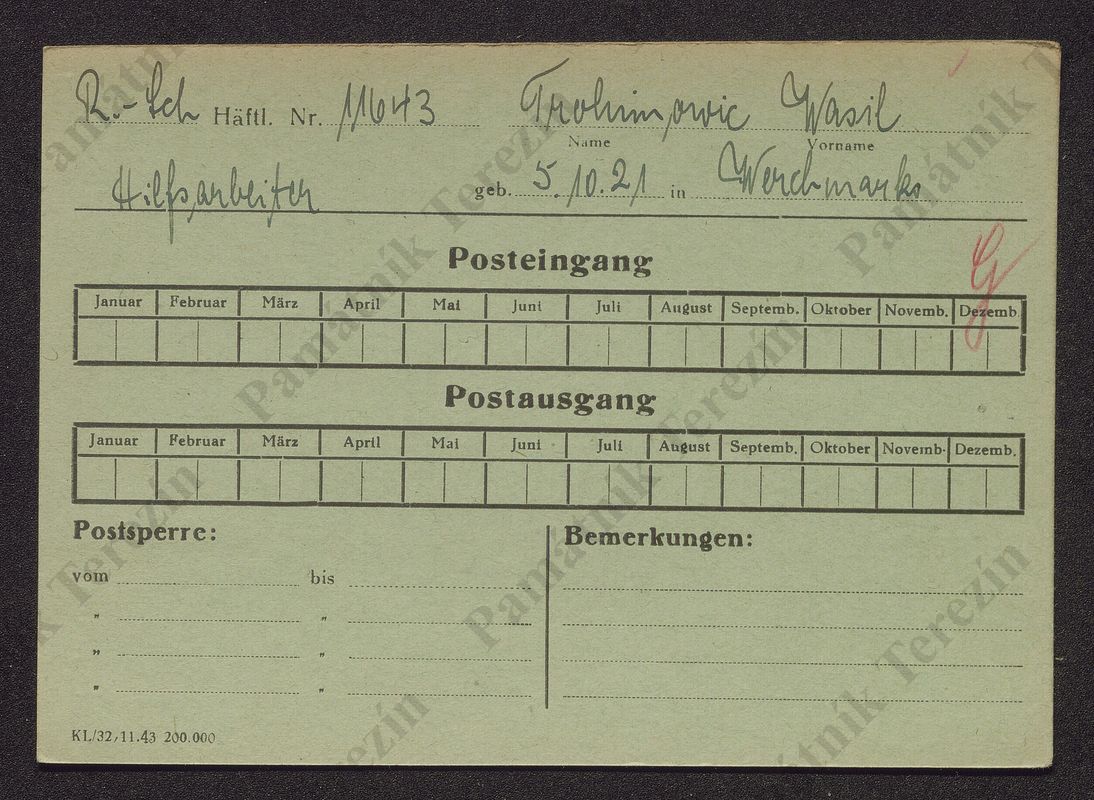 R.-Sch Häftl. Nr. 11643 Trohimowic Wasil
Name Vorname
Hilfsarbeiter geb. 5.10.21 in Werchmarks
Posteingang
Januar Februar März April Mai Juni Juli August Septemb. Oktober Novemb. Dezemb.
G
Postausgang
Januar Februar März April Mai Juni Juli August Septemb. Oktober Novemb. Dezemb.
Postsperre: Bemerkungen:
vom bis
" "
" "
" "
KL/32, 11.43 200.000
Památník Terezín